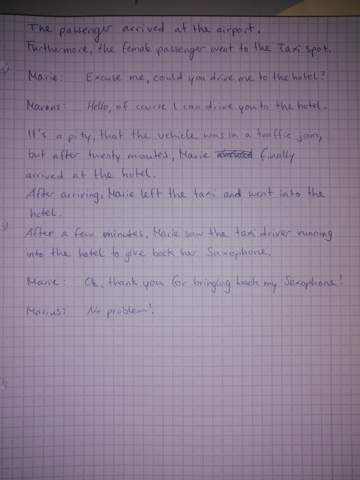 The passenger arrived at the airport.
Furthermore, the female passenger went to the Taxi spot.
Marie: Excuse me, could you drive me to the hotel?
Marius: Hello, of course I can drive you to the hotel.
It's a pity, that the vehicle was in a traffic jam,
but after twenty minutes, Marie finally
arrived at the hotel.
After arriving, Marie left the taxi and went into the
hotel.
After a few minutes, Marie saw the taxi driver running
into the hotel to give back her Saxophone.
Marie: Oh, thank you for bringing back my Saxophone!
Marius: No problem!